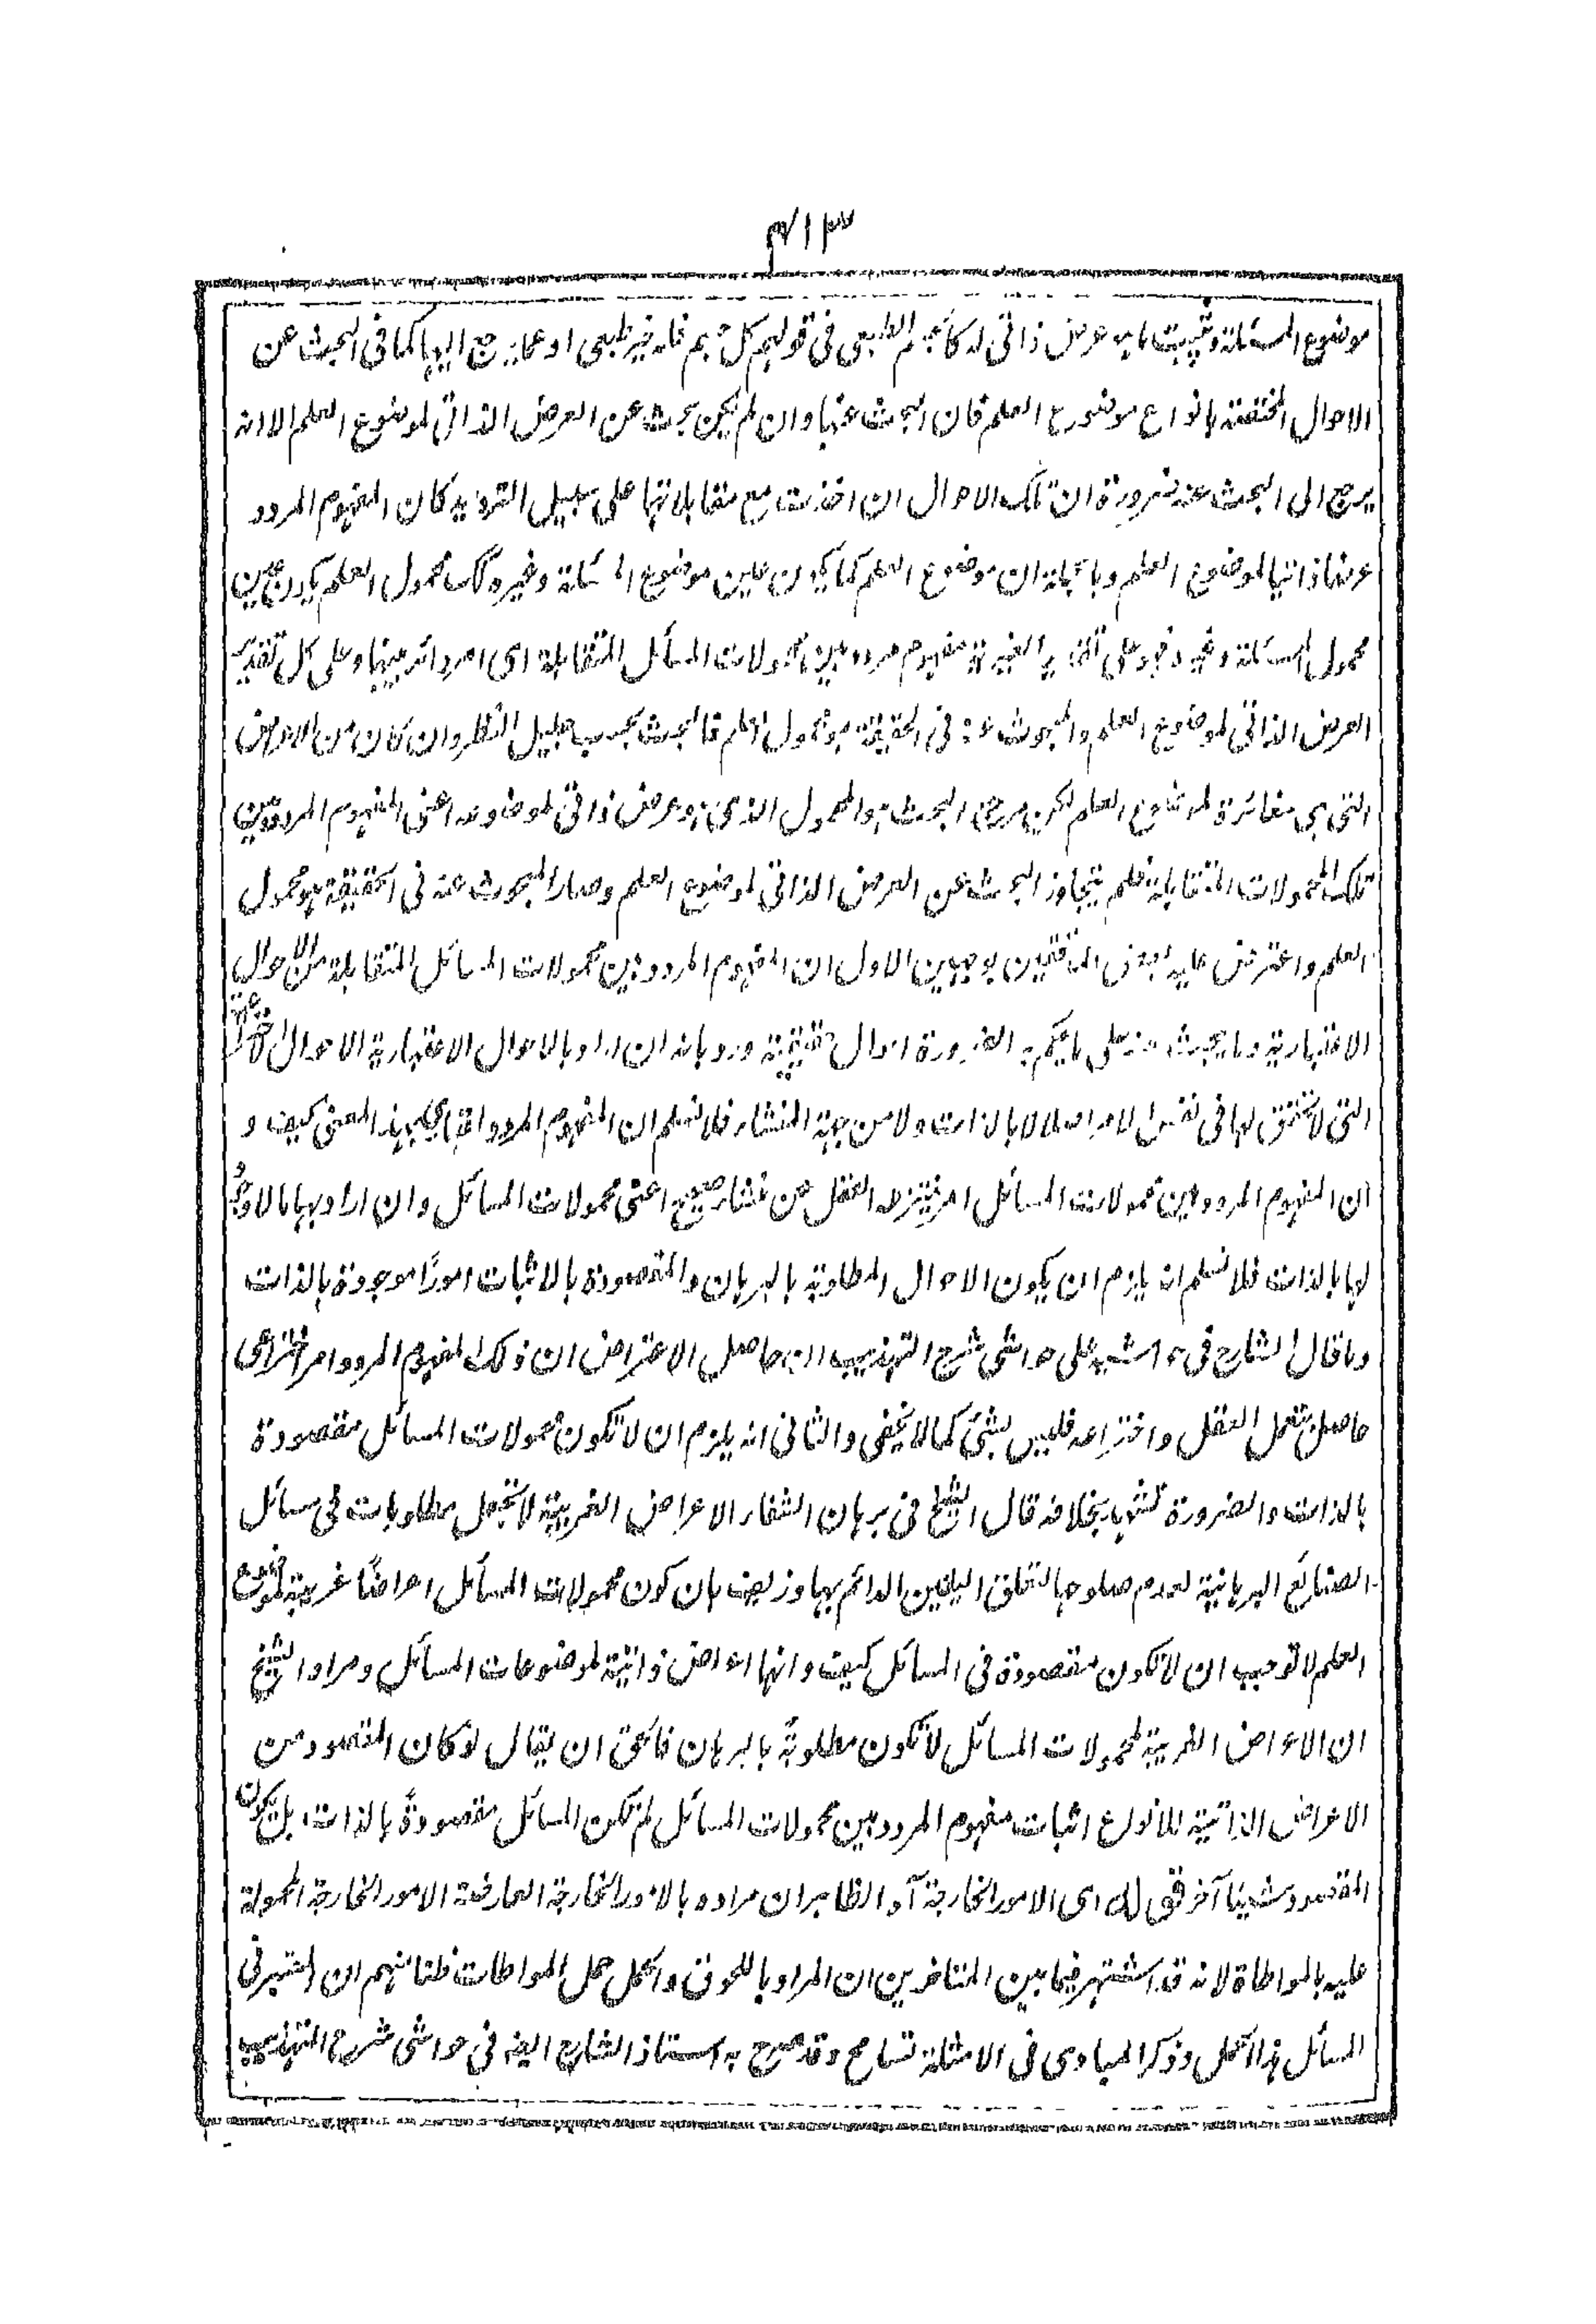 ٣١٣
موضوع المسئلة ويثبت ما هو عرض ذاتي له كالجسم الطبعي في قولهم كل جسم فله حيز طبعي او عما يرجع اليها كما في البحث عن
الاحوال المختصة بانواع موضوع العلم فان البحث عنها وان لم يكن بحث عن العرض الذاتي لموضوع العلم الا انه
يرجع الى البحث عنه ضرورة ان تلك الاحوال ان اخذت مع مقابلاتها على سبيل الترديد كان المفهوم المردد
عرضا ذاتيا لموضوع العلم وبالجملة ان موضوع العلم كما يكون عين موضوع المسئلة وغيره كك محمول العلم يكون عين
محمول المسئلة وغيره وهو على تقدير الغيرية مفهوم مردد بين محمولات المسائل المتقابلة اى امر دائر بينها وعلى كل تقدير
العرض الذاتي لموضوع العلم والمبحوث عنه في الحقيقة هو محمول العلم فالبحث بحسب جليل النظر وان كان من الاعراض
التي هي مغائرة لموضوع العلم لكن مرجع البحث هو المحمول الذى هو عرض ذاتي لموضوعه اعنى المفهوم المردد بين
تلك المحمولات المتقابلة فلم يتجاوز البحث عن العرض الذاتي لموضوع العلم وصار المبحوث عنه في الحقيقة هو محمول
العلم واعترض عليه بعض المحققين بوجهين الاول ان المفهوم المردد بين محمولات المسائل المتقابلة من الاحوال
الاعتبارية وما يبحث عنه على ما يحكم به الضرورة احوال حقيقية ورد بانه ان اراد بالاحوال الاعتبارية الاحوال
التي لا تحقق لها في نفس الامر اصلا لا بالذات ولا من جهة المنشاء فلا نسلم ان المفهوم المردد اعتبارى بهذا المعنى كيف و
ان المفهوم المردد بين محمولات المسائل امر ينتزعه العقل عن منشاء صحيح اعنى محمولات المسائل وان اراد بها ما لا وجود
لها بالذات فلا نسلم انه يلزم ان يكون الاحوال المطلوبة بالبرهان والمقصودة بالاثبات امورًا موجودة بالذات
وما قال الشارح في حاشيه على حواشى شرح التهذيب ان حاصل الاعتراض ان ذلك المفهوم المردد امر اختراعى
حاصل بتعمل العقل واختراعه فليس بشئ كما لا يخفى والثانى انه يلزم ان لا تكون محمولات المسائل مقصودة
بالذات والضرورة تشهد بخلافه قال الشيخ في برهان الشفاء الاعراض الغريبة لا تجعل مطلوبات في مسائل
الصنائع البرهانية لعدم صلوحها لتعلق اليقين الدائم بها وزيف بان كون محمولات المسائل اعراضًا غريبة لموضوع
العلم لا توجب ان لا تكون مقصودة في المسائل كيف وانها اعراض ذاتية لموضوعات المسائل ومراد الشيخ
ان الاعراض الغريبة لمحمولات المسائل لا تكون مطلوبةً بالبرهان فالحق ان يقال لو كان المقصود من
الاعراض الذاتية للانواع اثبات مفهوم المردد بين محمولات المسائل لم تكن المسائل مقصودةً بالذات بل يكون
المقصود شيئا آخر قوله اى الامور الخارجة آه الظاهر ان مراده بالامور الخارجة العارضة الامور الخارجة المحمولة
عليه بالمواطاة لانه قد اشتهر فيما بين المتاخرين ان المراد باللحوق والحمل حمل المواطات ظنا منهم ان المعتبر في
المسائل هذا الحمل وذكر المبادى في الامثلة تسامح وقد صرح به استاذ الشارح ايضا في حواشى شرح التهذيب